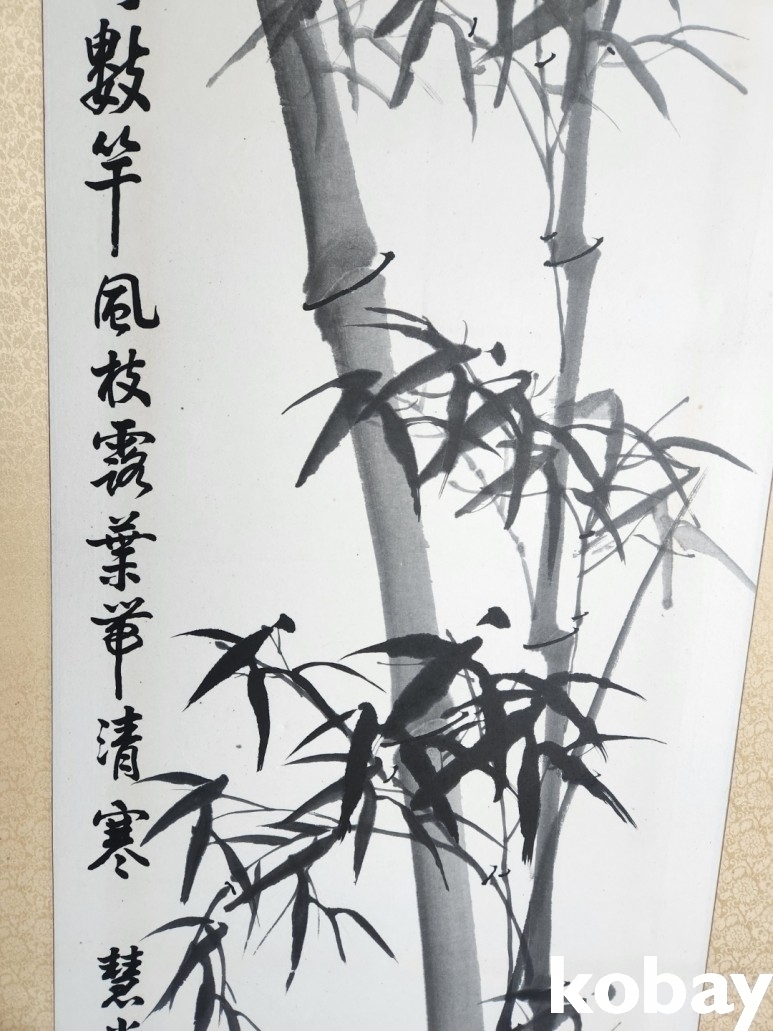 數竿風枝露葉帶清寒 慧
kobay